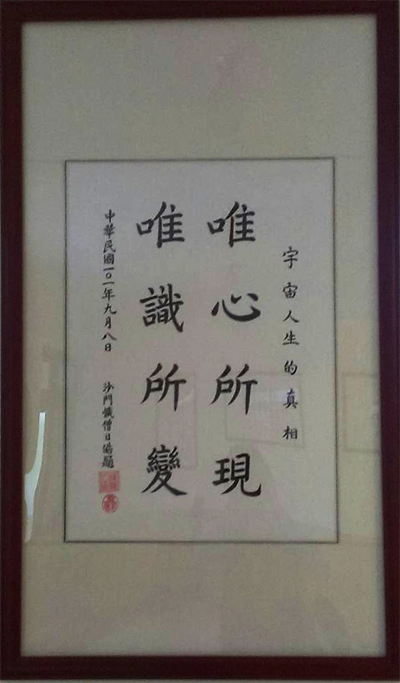 宇宙人生的真相
唯心所現
唯識所變
中華民國一〇一年九月八日
沙門懺僧日